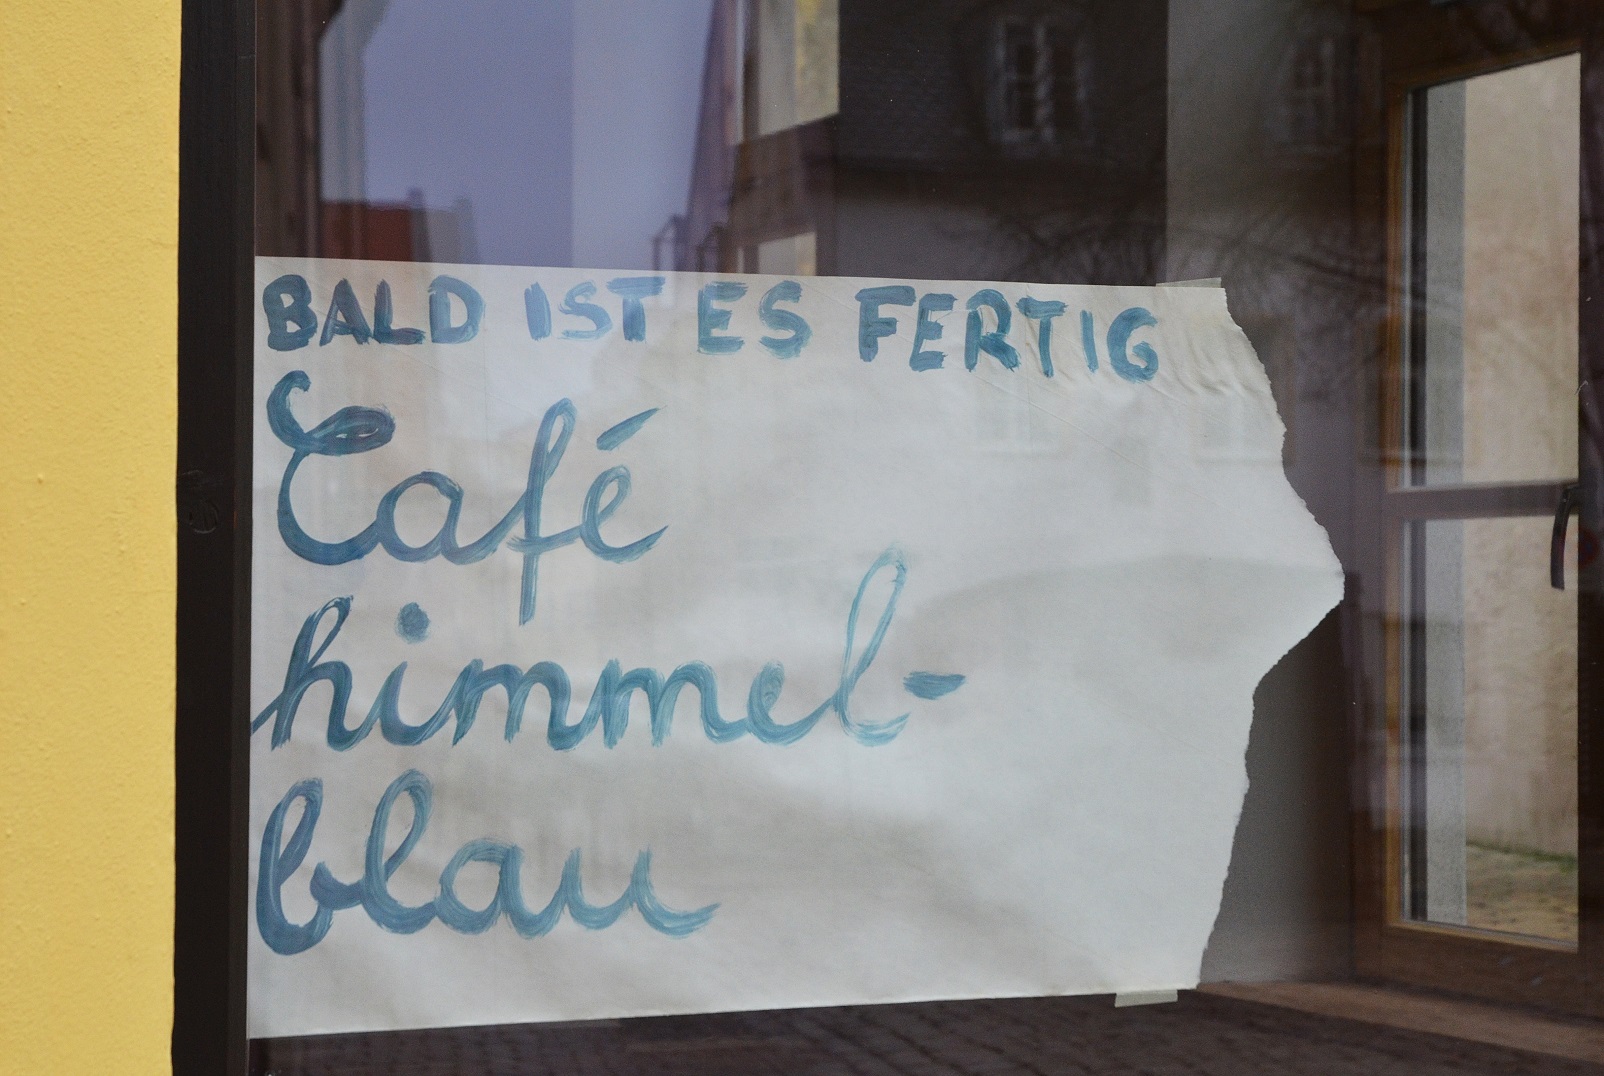 BALD IST ES FERTIG
Café
himmel-
blau